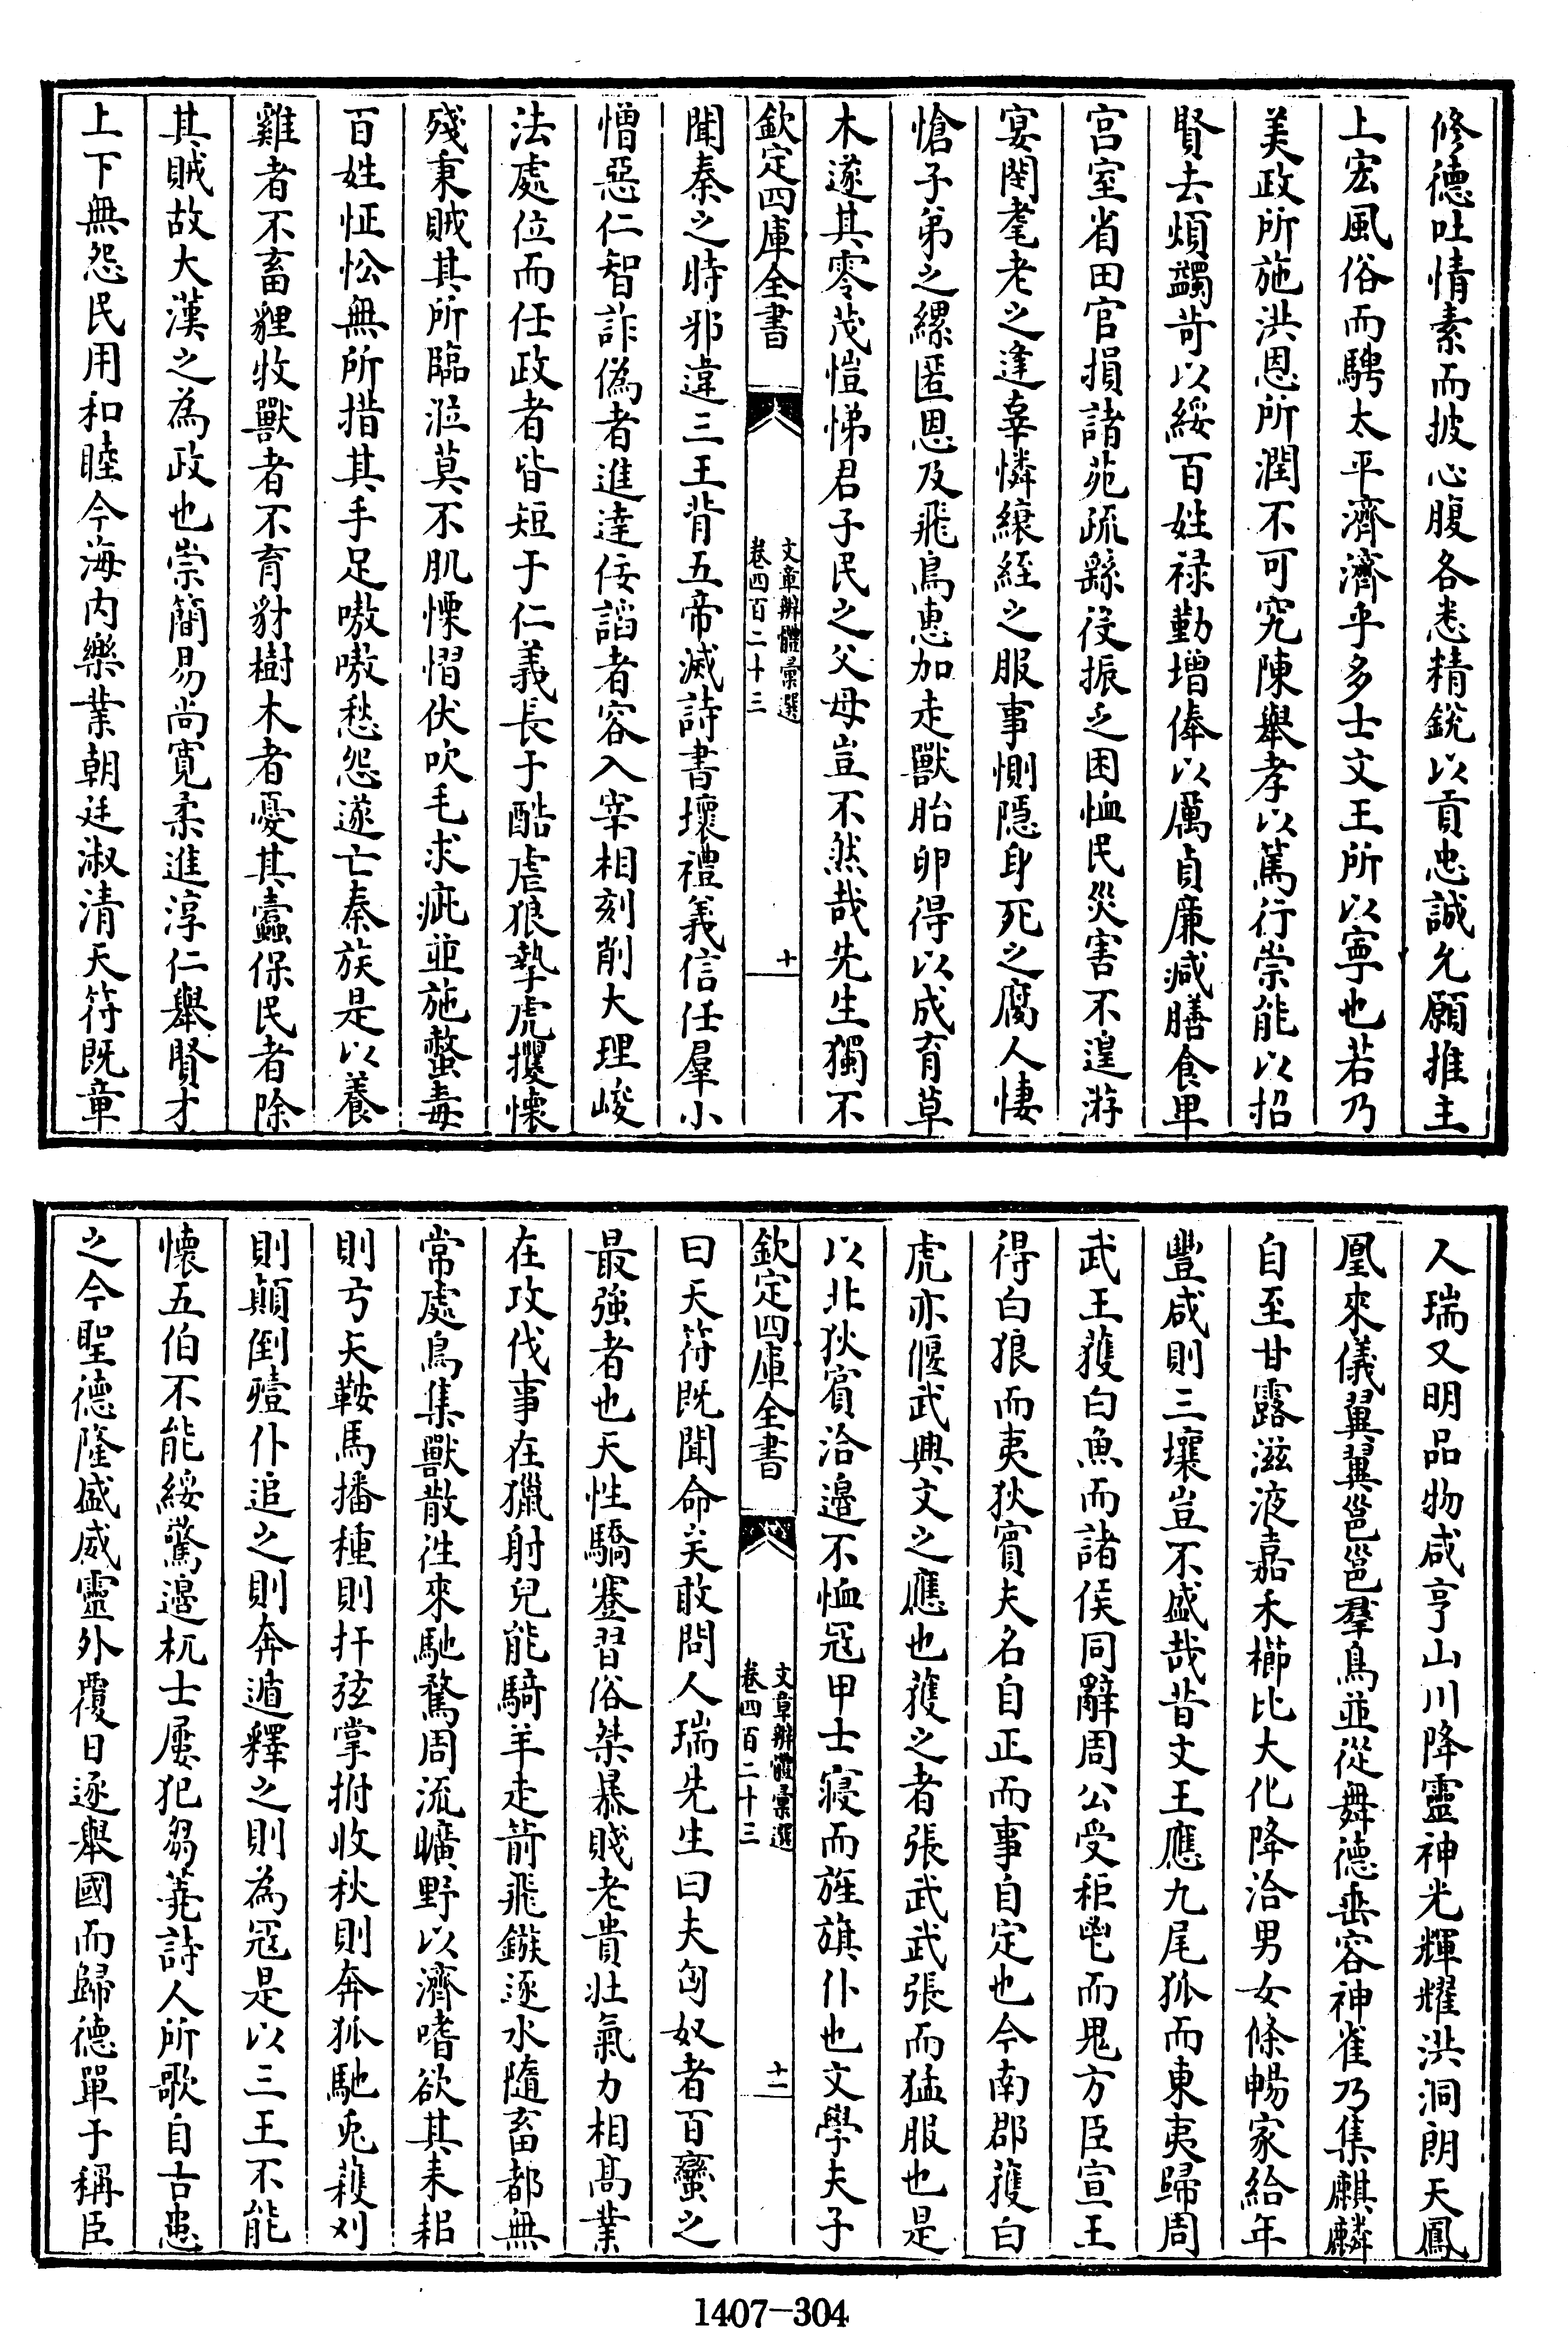 修德吐情素而披心腹各悉精銳以貢忠誠允願推主
上宏風俗而騁太平濟濟乎多士文王所以寧也若乃
美政所施洪恩所潤不可究陳舉孝以篤行崇能以招
賢去煩蠲苛以綏百姓祿勤增俸以厲貞廉減膳食卑
宫室省田官損諸苑疏繇役振乏困恤民災害不遑游
宴閔耄老之逢辜憐縗絰之服事惻隱身死之腐人悽
愴子弟之縲匿恩及飛鳥惠加走獸胎卵得以成育草
木遂其零茂愷悌君子民之父母豈不然哉先生獨不
欽定四庫全書
文章辨體彙選
卷四百二十三
十
聞秦之時邪違三王背五帝滅詩書壞禮義信任羣小
憎惡仁智詐偽者進達佞謟者容入宰相刻削大理峻
法處位而任政者皆短于仁義長于酷虐狼摯虎攫懐
殘秉賊其所臨涖莫不肌慄慴伏吹毛求疵並施螫毒
百姓怔忪無所措其手足嗷嗷愁怨遂亡秦族是以養
雞者不畜貍牧獸者不育豺樹木者憂其蠹保民者除
其賊故大漢之為政也崇簡易尚寛柔進淳仁舉賢才
上下無怨民用和睦今海内樂業朝廷淑清天符既章
人瑞又明品物咸亨山川降靈神光輝耀洪洞朗天鳳
凰來儀翼翼邕邕羣鳥並從舞德垂容神雀乃集麒麟
自至甘露滋液嘉禾櫛比大化降洽男女條暢家給年
豐咸則三壤豈不盛哉昔文王應九尾狐而東夷歸周
武王獲白魚而諸侯同辭周公受秬鬯而鬼方臣宣王
得白狼而夷狄賓夫名自正而事自定也今南郡獲白
虎亦偃武興文之應也獲之者張武武張而猛服也是
以北狄賓洽邉不恤冦甲士寢而旌旗仆也文學夫子
欽定四庫全書
文章辨體彙選
卷四百二十三
十一
曰天符既聞命矣敢問人瑞先生曰夫匈奴者百蠻之
最強者也天性驕蹇習俗桀暴賤老貴壯氣力相髙業
在攻伐事在獵射兒能騎羊走箭飛鏃逐水隨畜都無
常處鳥集獸散往來馳騖周流曠野以濟嗜欲其耒耜
則弓矢鞍馬播種則扞弦掌拊收秋則奔狐馳兎穫刈
則顛倒殪仆追之則奔遁釋之則為冦是以三王不能
懐五伯不能綏驚邉杌士屢犯芻蕘詩人所歌自古患
之今聖德隆盛威靈外覆日逐舉國而歸德單于稱臣
1407-304